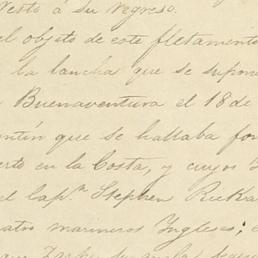 Vesto á su regreso.
el objeto de este fletamento
la lancha que se supon
Buenaventura el 18 de
ntin que se hallaba fon
erto en la Costa, y cuyos
el Cap.n Stephen
atro marineros Ingleses;